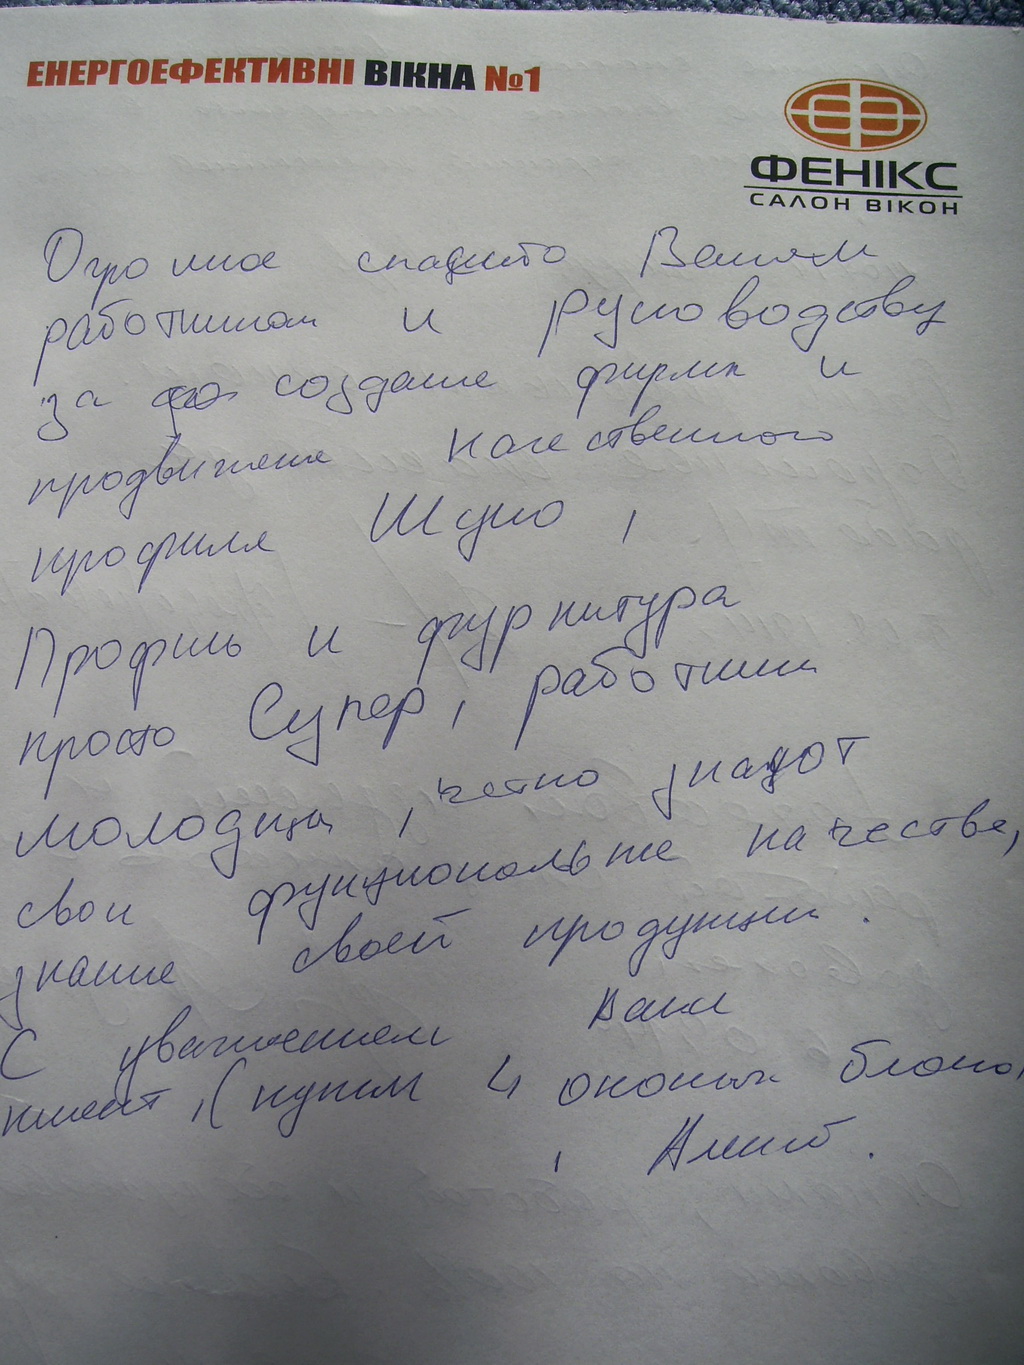 ЕНЕРГОЕФЕКТИВНІ ВІКНА №1
ФЕНІКС
САЛОН ВІКОН
Огромное спасибо Вашим
работникам и руководству
за создание фирмы и
продвижение качественного
профиля Шуко,
Профиль и фурнитура
просто Супер, работники
молодцы, четко знают
свои функциональные качества,
знание своей продукции.
С уважением Ваш
клиент, (купил 4 оконных блока,
,